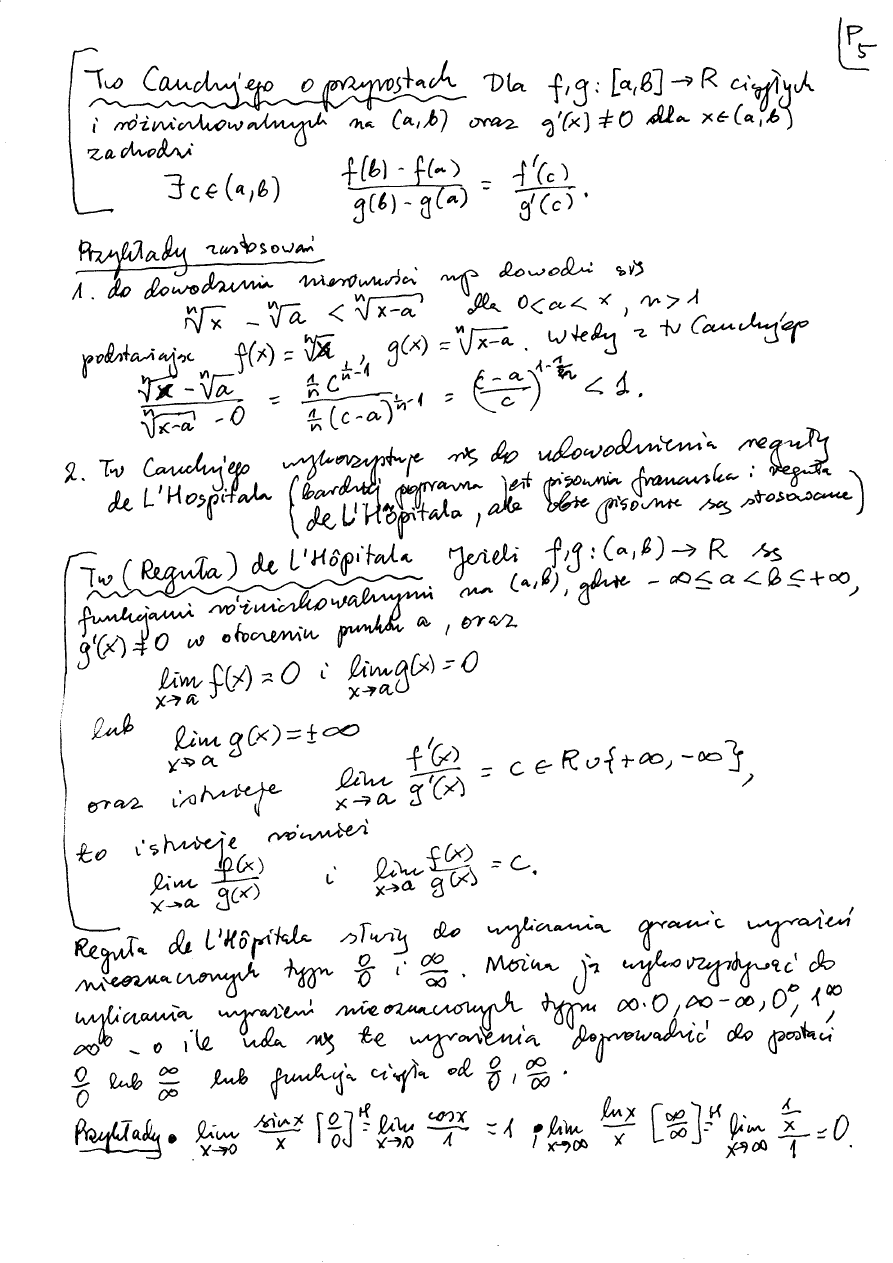 P5
Tw Cauchy'ego o przyrostach Dla f,g: [a,b] → R ciągłych
i różniczkowalnych na (a,b) oraz g'(x) ≠ 0 dla x∈(a,b)
zachodzi
∃c∈(a,b) (f(b) - f(a))/(g(b) - g(a)) = f'(c)/g'(c).
Przykłady zastosowań
1. do dowodzenia nierówności np dowodzi się
ⁿ√x - ⁿ√a < ⁿ√(x-a) dla 0<a<x, n>1
podstawiając f(x) = ⁿ√x, g(x) = ⁿ√(x-a). Wtedy z tw Cauchy'ego
(ⁿ√x - ⁿ√a)/(ⁿ√(x-a) - 0) = (1/n c^(1/n - 1))/(1/n (c-a)^(1/n - 1)) = ((c-a)/c)^(1 - 1/n) < 1.
2. Tw Cauchy'ego wykorzystuje się do udowodnienia reguły
de L'Hospitala (bardziej poprawna jest pisownia francuska: reguła
de L'Hôpitala, ale obie pisownie są stosowane)
Tw (Reguła) de L'Hôpitala Jeżeli f,g: (a,b) → R są
funkcjami różniczkowalnymi na (a,b), gdzie -∞ ≤ a < b ≤ +∞,
g'(x) ≠ 0 w otoczeniu punktu a, oraz
lim x→a f(x) = 0 i lim x→a g(x) = 0
lub lim x→a g(x) = ±∞
oraz istnieje lim x→a f'(x)/g'(x) = c ∈ R∪{+∞, -∞},
to istnieje również
lim x→a f(x)/g(x) i lim x→a f(x)/g(x) = c.
Reguła de L'Hôpitala służy do wyliczania granic wyrażeń
nieoznaczonych typu 0/0 i ∞/∞. Można ją wykorzystywać do
wyliczania wyrażeń nieoznaczonych typu ∞·0, ∞-∞, 0⁰, 1^∞,
∞⁰ - o ile uda się te wyrażenia doprowadzić do postaci
0/0 lub ∞/∞ lub funkcja ciągła od 0/0, ∞/∞.
Przykłady • lim x→0 sinx/x [0/0] =ᴴ lim x→0 cosx/1 = 1, • lim x→∞ lnx/x [∞/∞] =ᴴ lim x→∞ (1/x)/1 = 0.